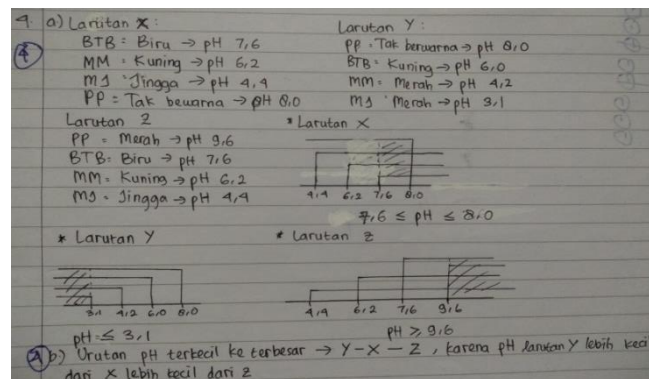 4. a) Larutan X :
BTB = Biru → pH 7,6
MM = Kuning → pH 6,2
MJ = Jingga → pH 4,4
PP = Tak bewarna → pH 8,0
Larutan Y :
PP = Tak berwarna → pH 8,0
BTB = Kuning → pH 6,0
MM = Merah → pH 4,2
MJ = Merah → pH 3,1
Larutan Z
PP = Merah → pH 9,6
BTB = Biru → pH 7,6
MM = Kuning → pH 6,2
MJ = Jingga → pH 4,4
* Larutan X
4,4 6,2 7,6 8,0
7,6 ≤ pH ≤ 8,0
* Larutan Y
3,1 4,2 6,0 8,0
pH = ≤ 3,1
* Larutan Z
4,4 6,2 7,6 9,6
pH ≥ 9,6
b) Urutan pH terkecil ke terbesar → Y - X - Z , karena pH larutan Y lebih keci
dari X lebih kecil dari Z